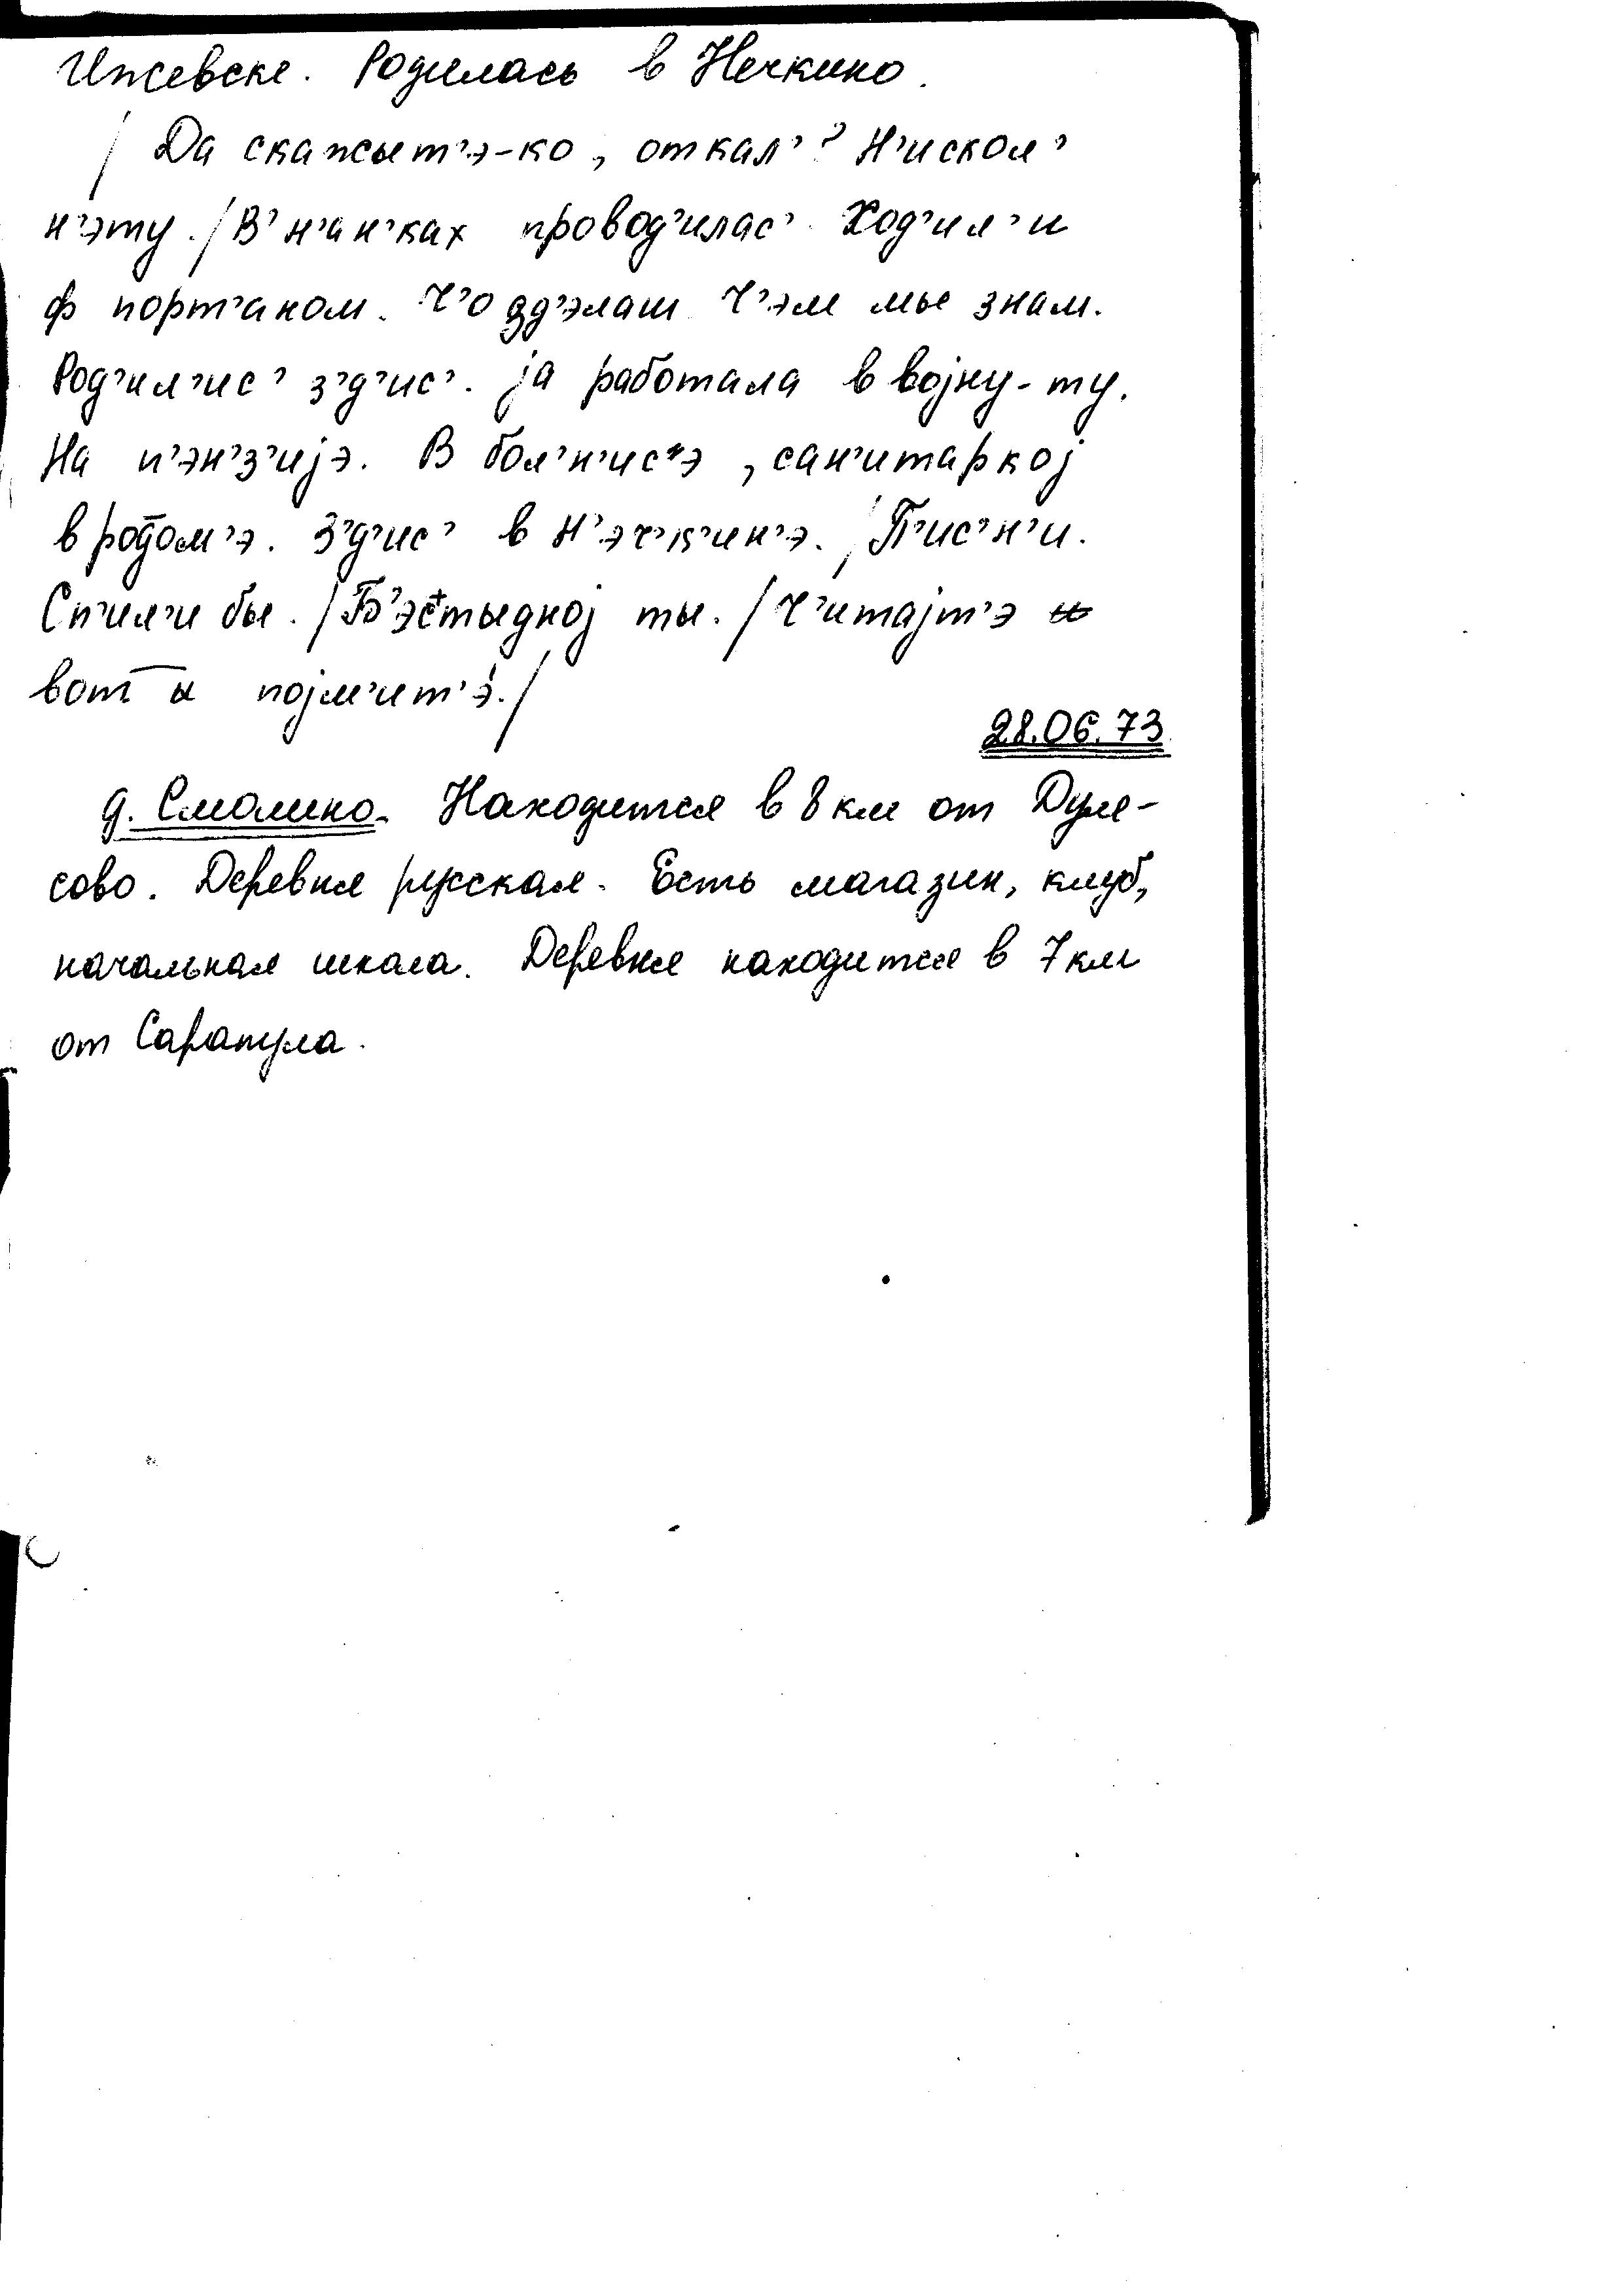 Ижевске. Родилась в Нечкино.
/ Да скажыт'э-ко, откал'? Н'искол'
н'эту. / В' н'ан'ках провод'илас'. Ход'ил'и
ф порт'аном. Ч'о зд'элаш. Ч'эм мы знам.
Род'ил'ис' з'д'ис'. ја работала в војну-ту.
На п'эн'з'ијэ. В бол'н'ис'э, сан'итаркој
в родом'э. З'д'ис' в Н'эч'к'ин'э. / П'ис'н'и.
Сп'ил'и бы. / Б'эстыдној ты. / Ч'итајт'э
вот и појм'ит'э́. /
28.06.73
д. Смолино. Находится в 8 км от Дуле-
сово. Деревня русская. Есть магазин, клуб,
начальная школа. Деревня находится в 7 км
от Сарапула.